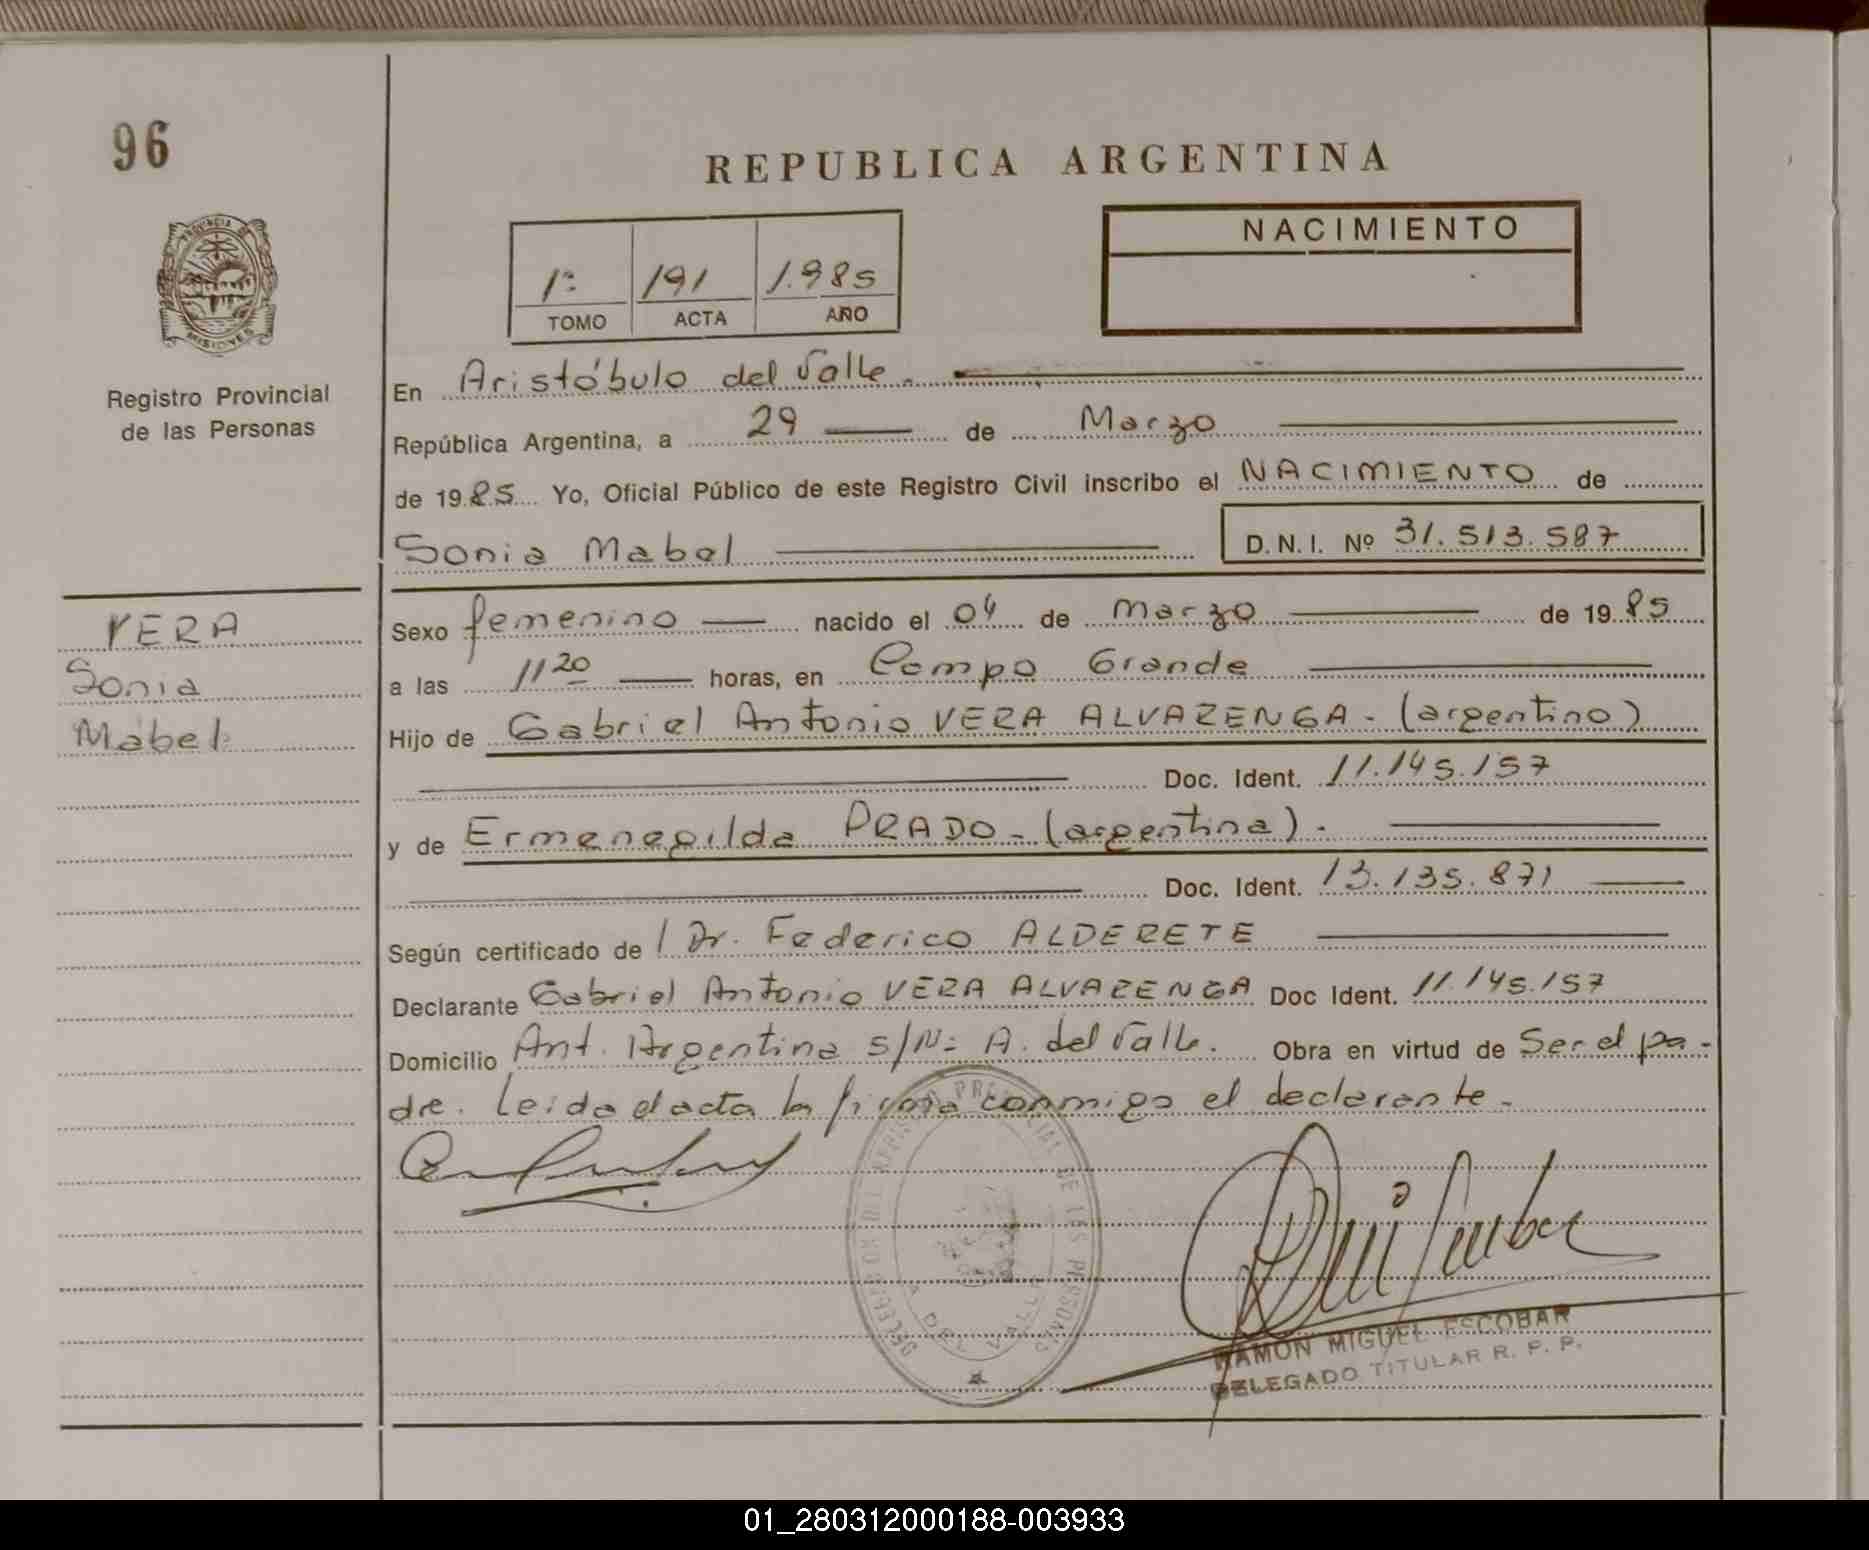 96
REPUBLICA ARGENTINA
PROVINCIA DE
MISIONES
NACIMIENTO
1º 191 1.985
TOMO ACTA AÑO
Registro Provincial
de las Personas
En Aristóbulo del Valle.
República Argentina, a 29 de Marzo
de 1985 Yo, Oficial Público de este Registro Civil inscribo el NACIMIENTO de
Sonia Mabel D.N.I. Nº 31.513.587
VERA
Sonia
Mabel
Sexo femenino nacido el 04 de Marzo de 1985
a las 11 20 horas, en Campo Grande
Hijo de Gabriel Antonio VERA ALVARENGA - (argentino)
Doc. Ident. 11.145.157
y de Ermenegilda PRADO - (argentina).
Doc. Ident. 13.135.871
Según certificado de / Dr. Federico ALDERETE
Declarante Gabriel Antonio VERA ALVARENGA Doc Ident. 11.145.157
Domicilio Ant. Argentina s/Nº A. del Valle. Obra en virtud de Ser el pa-
dre. Leida el acta la firma conmigo el declarante.
DELEGACION DEL REGISTRO PROVINCIAL DE LAS PERSONAS
A. DEL VALLE
RAMON MIGUEL ESCOBAR
DELEGADO TITULAR R. P. P.
01_280312000188-003933